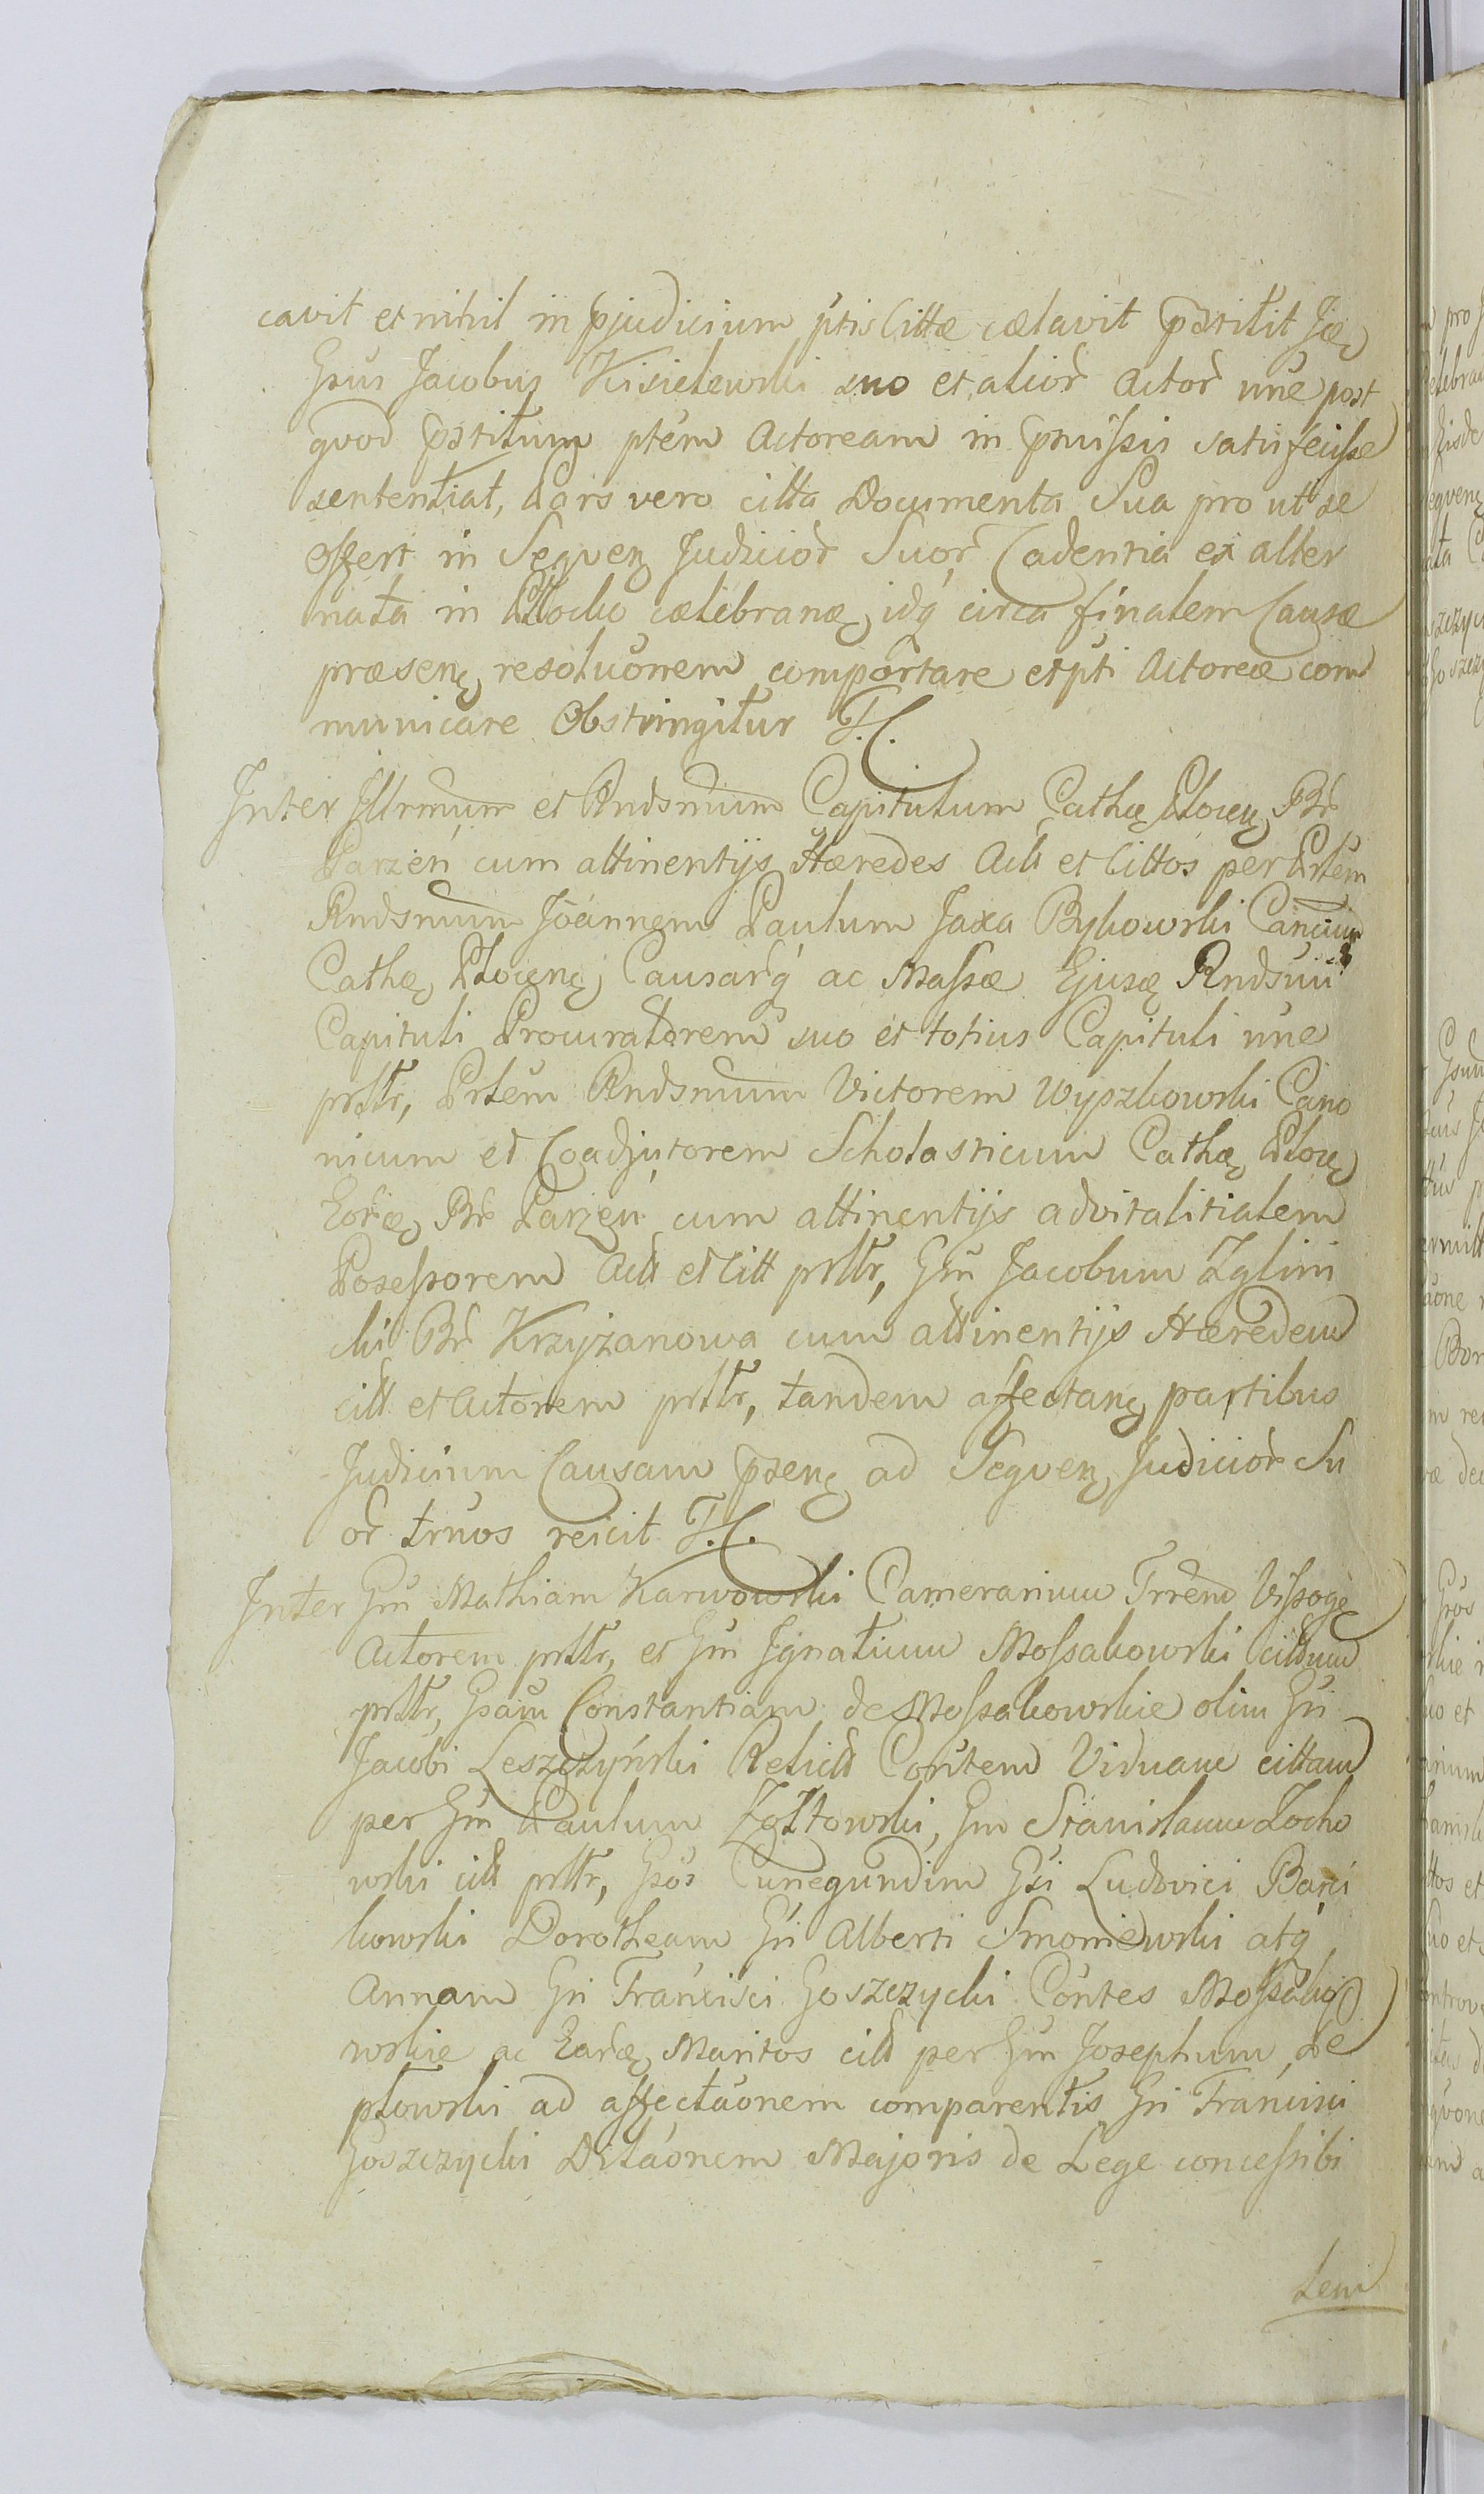 cavit et nihil in pjudicium ptis Cittæ cælavit pstitit Jæ
Gsus Jacobus Kisielewski suo et alior Actor nne post
quod pstitum ptem Actoream in pmissis satisfecisse
sententiat, Pars vero citta Documenta Sua pro ut se
offert in Sequen Judicior Suor Cadentia ex alter
nata in Plocko cælebranæ, idq circa finalem Causæ
præsenę resolvonem comportare et pti Actoreæ com
municare Obstringitur T.C.
Inter Illrmum et Rndsmum Capitulum Cathæ Plocen Br
Parzeń cum attinentijs Hæredes Act et Cittos per Prlem
Rndsmum Joannem Paulum Jaxa Bykowski Cancum
Cathæ Plocenę Causarq ac Massæ Ejusę Rndsmi
Capituli Procuratorem suo et totius Capituli nne
prltr, Prlem Rndsmum Victorem Wyszkowski Cano
nicum et Coadjutorem Scholasticum Cathæ Ploceę
Eorę, Br Parzeń cum attinentijs advitalitialem
Possessorem Act et Citt prltr, Gm Jacobum Zglini
cki Br Krzyżanowa cum attinentijs Hæredem
citt et Actorem prltr, tandem affectanę partibus
Judicium Causam psenę ad Sequen Judicior Su
or trnos reicit T.C.
Inter Gm Mathiam Karwowski Camerarium Trrem Vissogę
Actorem prltr, et Gm Ignatium Mossakowski cittum
prltr, Gsam Constantiam de Mossakowskie olim Gn
Jacobi Leszczyński Relict Contem Viduam cittam
per Gm Paulum Zołtowski, Gm Stanislaum Zocho
wski citt prltr, Gsos Cunegundim Gsi Ludovici Barci
kowski Dorotheam Gn Alberti Smoniewski atq
Annam Gn Francisci Goszczycki Contes Mossako
wskie ac Earę Maritos citt per Gm Josephum Le
ptowski ad affectaonem comparentis Gn Francisci
Goszczycki Dilaonem Majoris de Lege concessibi
lem